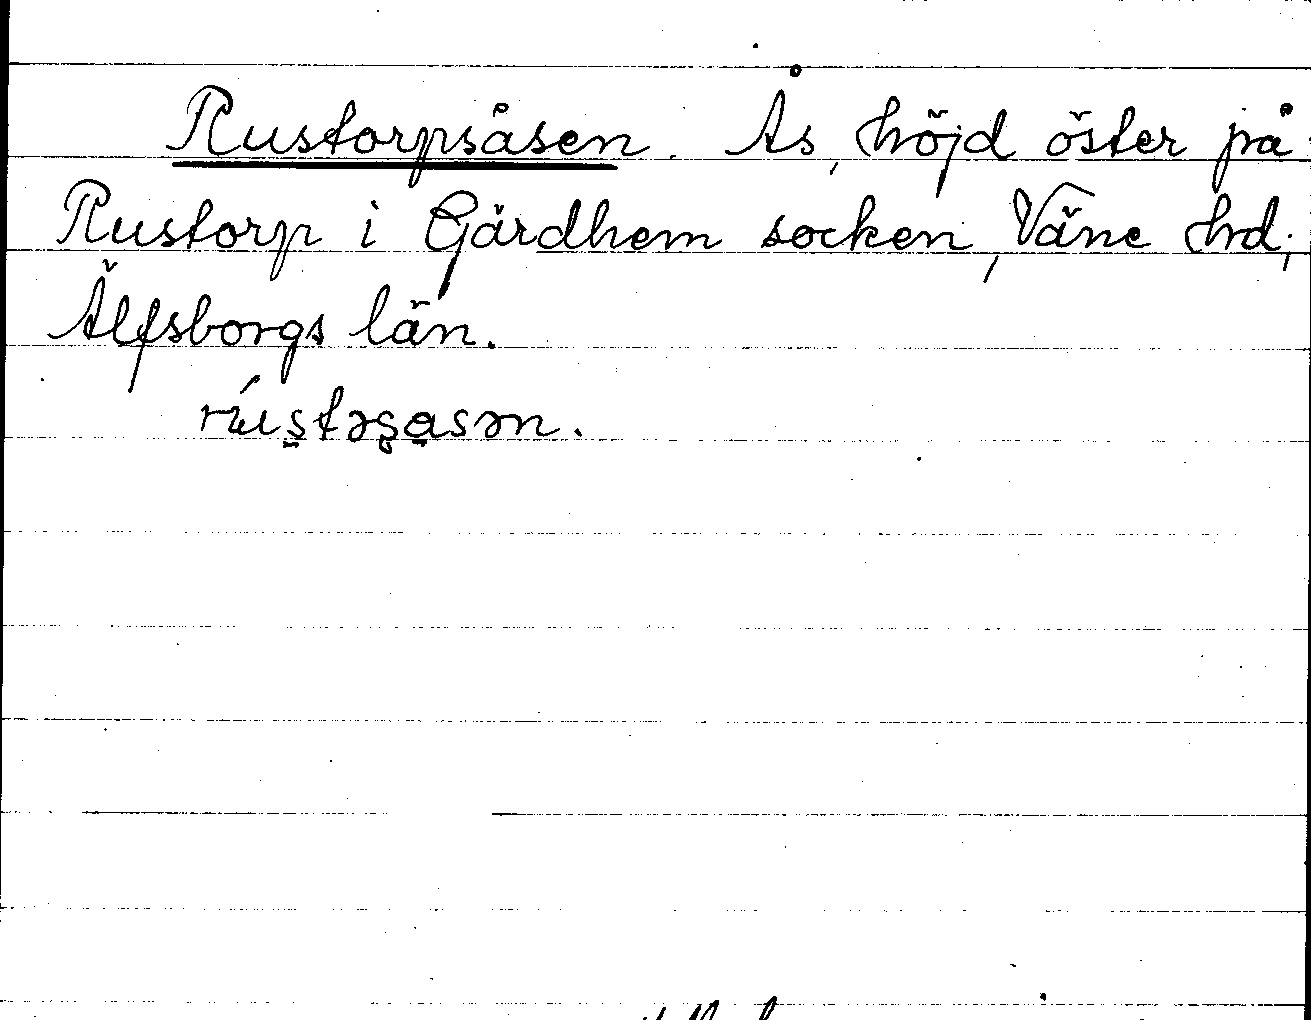 Rustorpsåsen. Ås, höjd öster på
Rustorp i Gärdhem socken, Väne hd,
Älfsborgs län.
rústəs̨ɑsən.